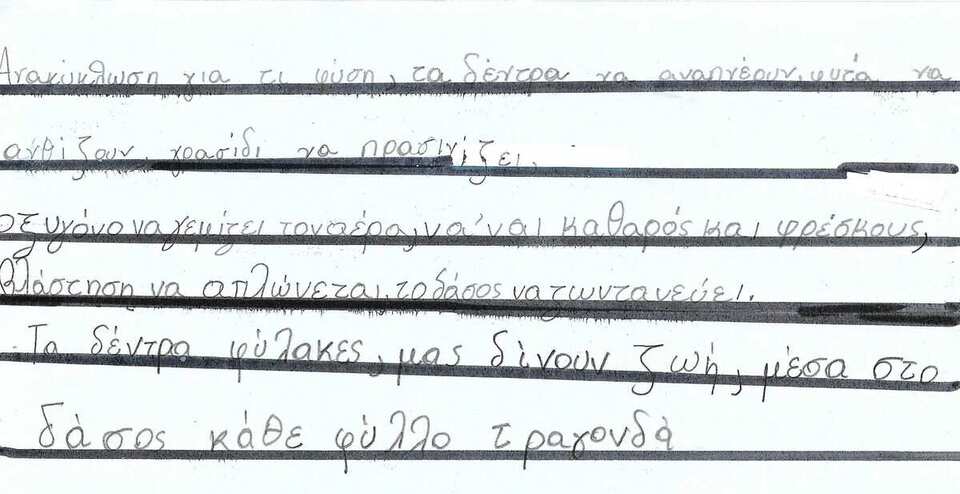 Ανακύκλωση για τι φύση, τα δέντρα να αναπνέουν, φυτά να
ανθίζουν, γρασίδι να πρασινίζει.
οξυγόνο να γεμίζει τον αέρα, να'ναι καθαρός και φρέσκους,
Βλάστηση να απλώνεται, το δάσος να ζωντανεύει.
Τα δέντρα φύλακες, μας δίνουν ζωή, μέσα στο
δάσος κάθε φύλλο τραγουδά